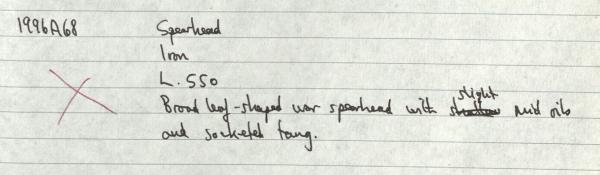 1996A68 Spearhead
Iron
L. 550
slight
Broad leaf-shaped war spearhead with shallow mid rib
and socketed tang.